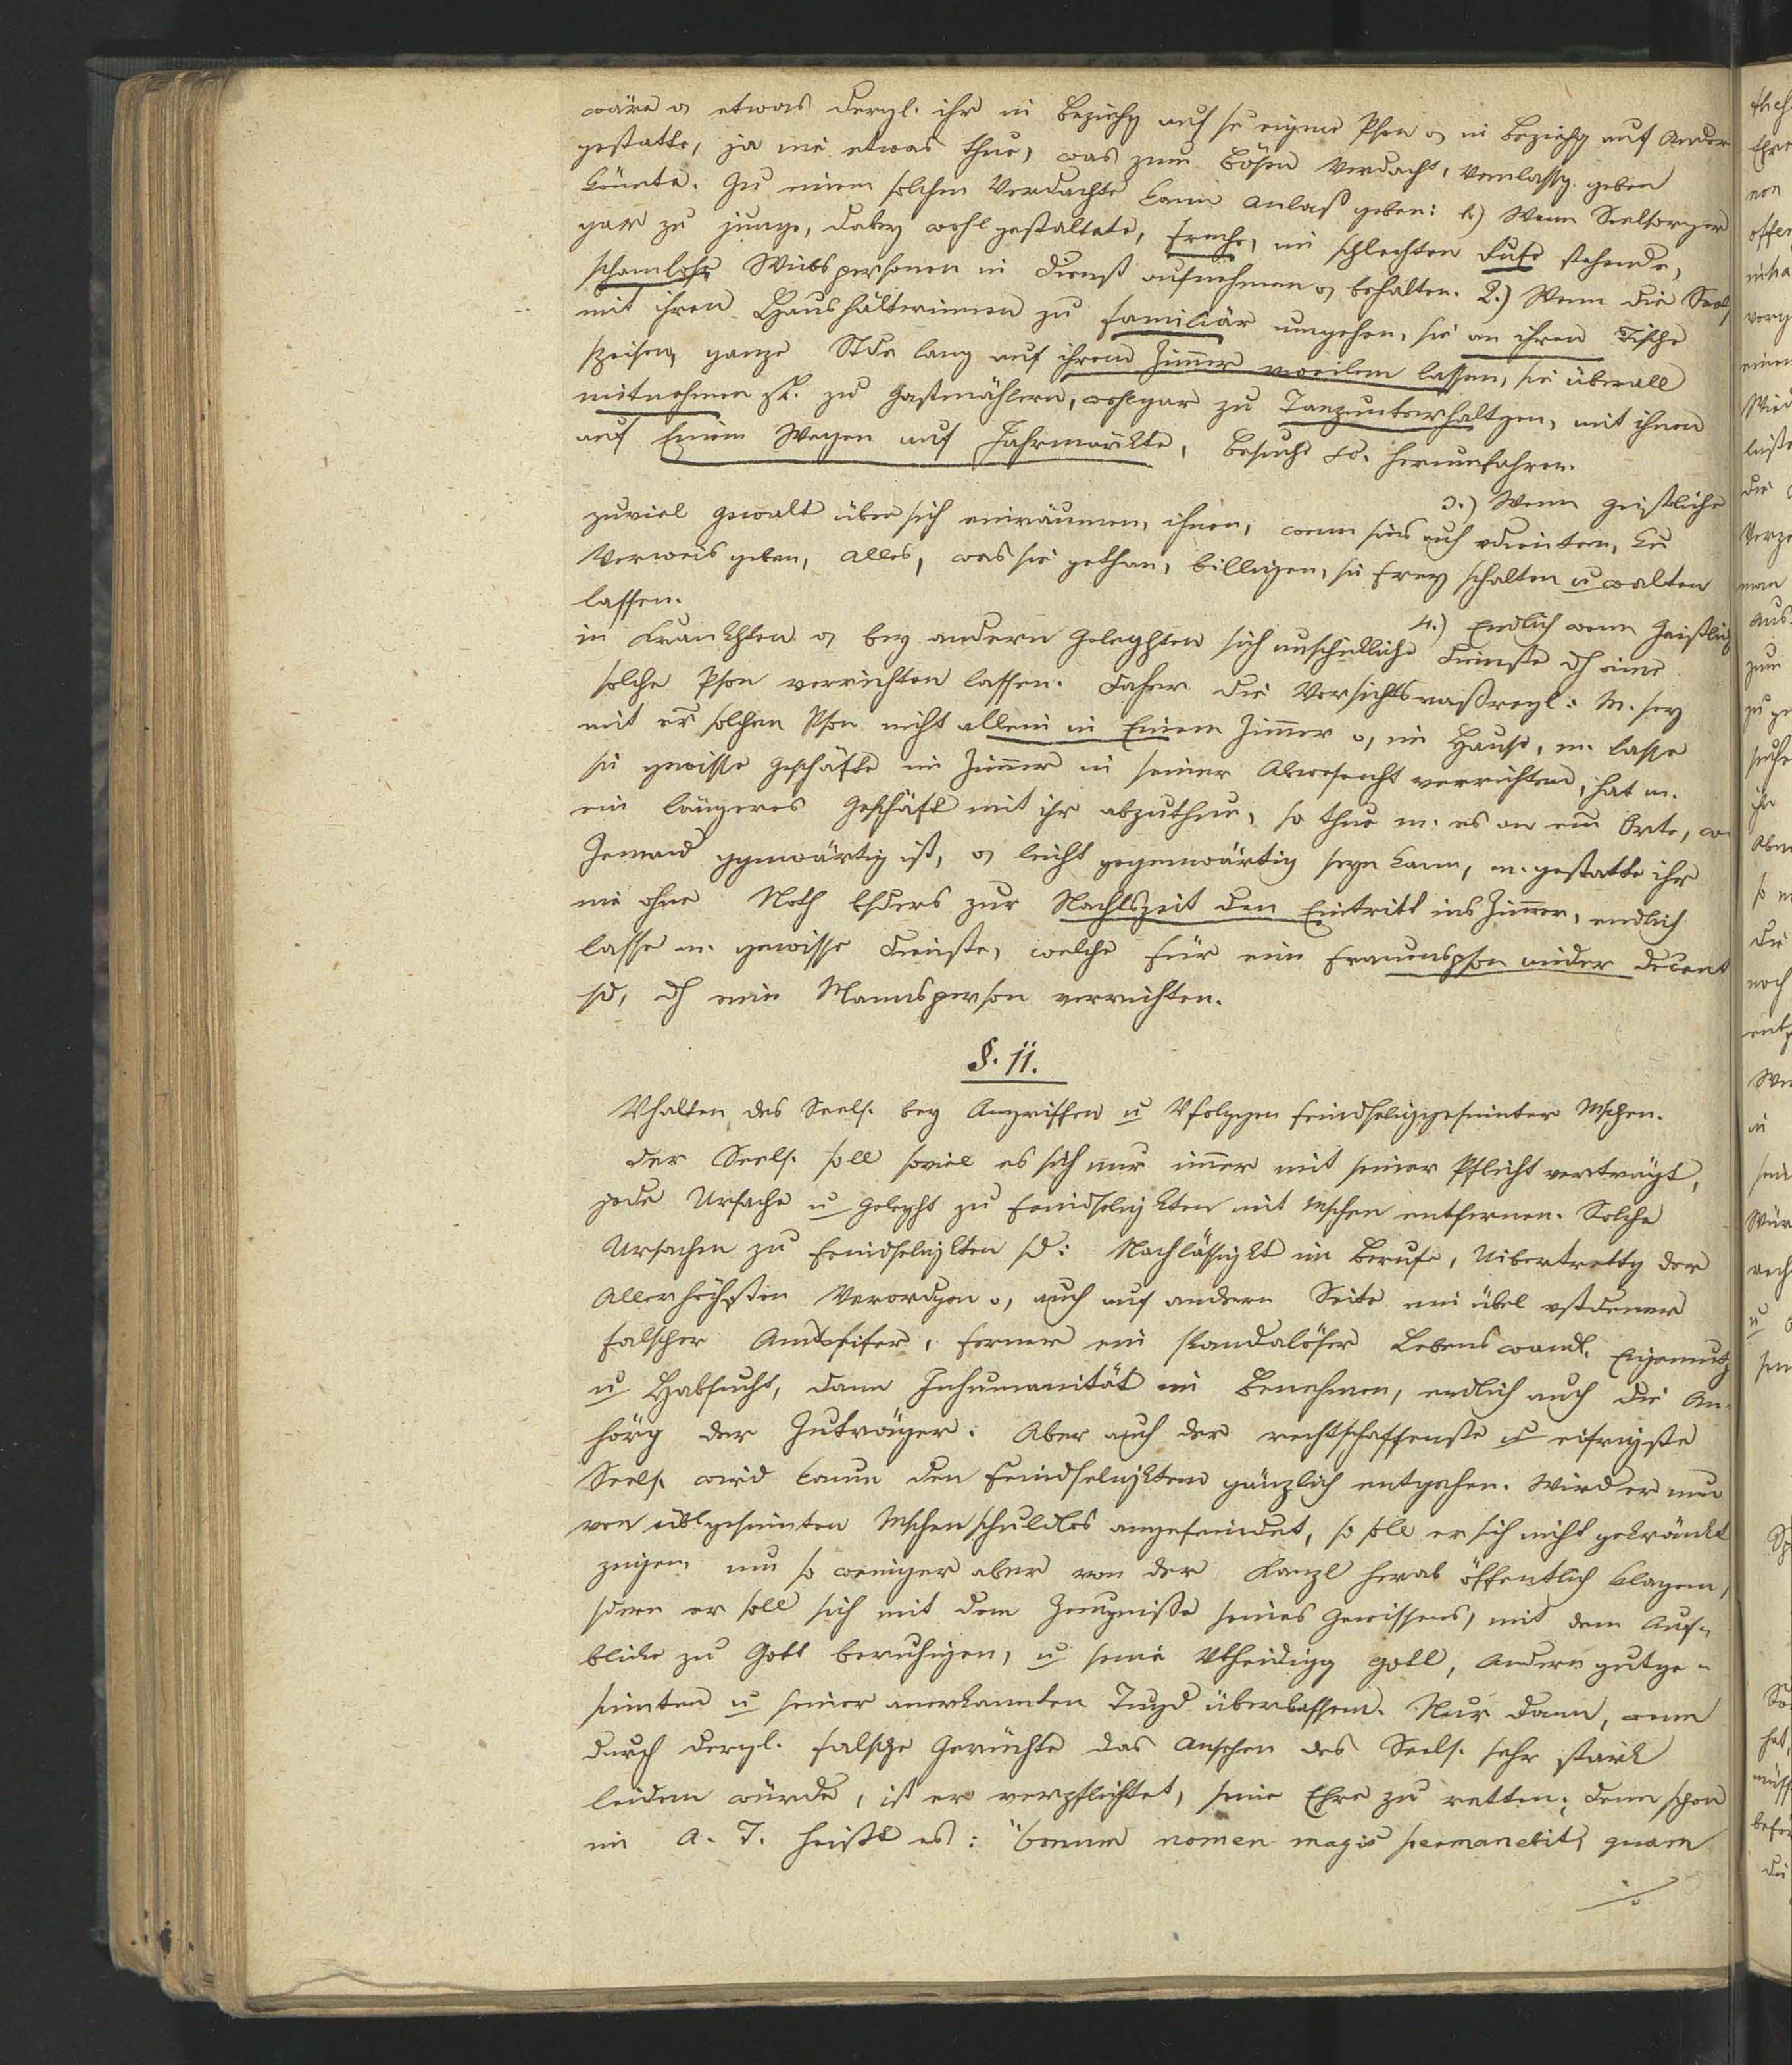 wäre o, etwas dergl. ihr in Beziehg auf se eigene Pson o, in Beziehg auf Ander
gestatte, ja nie etwas thue, was zum bösen Verdacht, Vanlassg. geben
könnte. Zu einem solchen Verdachte kann Anlaß geben: 1.) Wenn Seelsorger
gar zu junge, dabey wohl gestaltete, freche, im schlechten Rufe stehende,
schamlose Weibspersonen in Dienst aufnehmen o, behalten. 2.) Wenn die Seels
mit ihren Haushälterinnen zu familiär umgehen, sie an ihrem Tische
speisen, ganze Stden lang auf ihrem Zimmer weilen lassen, sie überall
mitnehmen zB. zu Gastmählern, wohlgar zu Tanzunterhaltgen, mit ihnen
auf Einem Wagen auf Jahrmärkte, Besuche herumfahren.
3.) Wenn Geistliche
zuviel Gewalt über sich einräumen, ihnen, wenn sies auch vdienten, kn
Verweis geben, alles, was sie gethan, billigen, sie frey schalten u walten
lassen.
4.) Endlich wenn Geistlich
in Krankhten o, bey andern Geleghten sich unschickliche Dienste dh eine
solche Pson verrichten lassen. Daher die Vorsichtsmaßregl: M. sey
mit er solchen Pson nicht allein in Einem Zimmer o, im Hause, m. lasse
sie gewisse Geschäfte im Zimmer in seiner Abwesenht verrichten, hat m.
ein längeres Geschäft mit ihr abzuthun, so thue m. es an em Orte, wo
Jemand ggenwärtig ist, o, leicht gegenwärtig seyn kann, m. gestatte ihr
nie ohne Noth bsders zur Nachtszeit den Eintritt ins Zimmer, endlich
lasse m. gewisse Dienste, welche für eine Frauenspson minder decent
sd, dh eine Mannsperson verrichten.
§. 11.
Vhalten des Seels. bey Angriffen u Vfolggen feindseliggesinnter Mschen.
Der Seels. soll soviel es sich nur immer mit seiner Pflicht verträgt,
jede Ursache u Geleght zu Feindseligkten mit Mschen entfernen. Solche
Ursachen zu Feindseligkten sd: Nachlässigkt im Berufe, Uibertrettg der
Allerhöchsten Verordgen o, auch auf andern Seite ein übel vstdener
falscher Amtseifer, ferner ein skandalöser Lebenswandl. Eigennutz
u Habsucht, dann Inhumanität im Benehmen, endlich auch die An-
hörg der Zuträger. Aber auch der rechtschaffenste u eifrigste
Seels. wird kaum den Feindseligkten gänzlich entgehen. Wird er nun
von üblgesinnten Mschen schuldlos angefeindet, so soll er sich nicht gekränkt
zeigen um so weniger aber von der Kanzl herab öffentlich klagen,
sdern er soll sich mit dem Zeugnisse seines Gewissens, mit dem Auf-
blicke zu Gott beruhigen, u seine Vtheidigg Gott, andern gutge-
sinnten u seiner anerkannten Tugd überlassen. Nur dann, wenn
durch dergl. falsche Gerüchte das Ansehen des Seels. sehr stark
leiden würde, ist er verpflichtet, seine Ehre zu retten; denn schon
im A. T. heißt es: "bonum nomen magis permanebit, quam